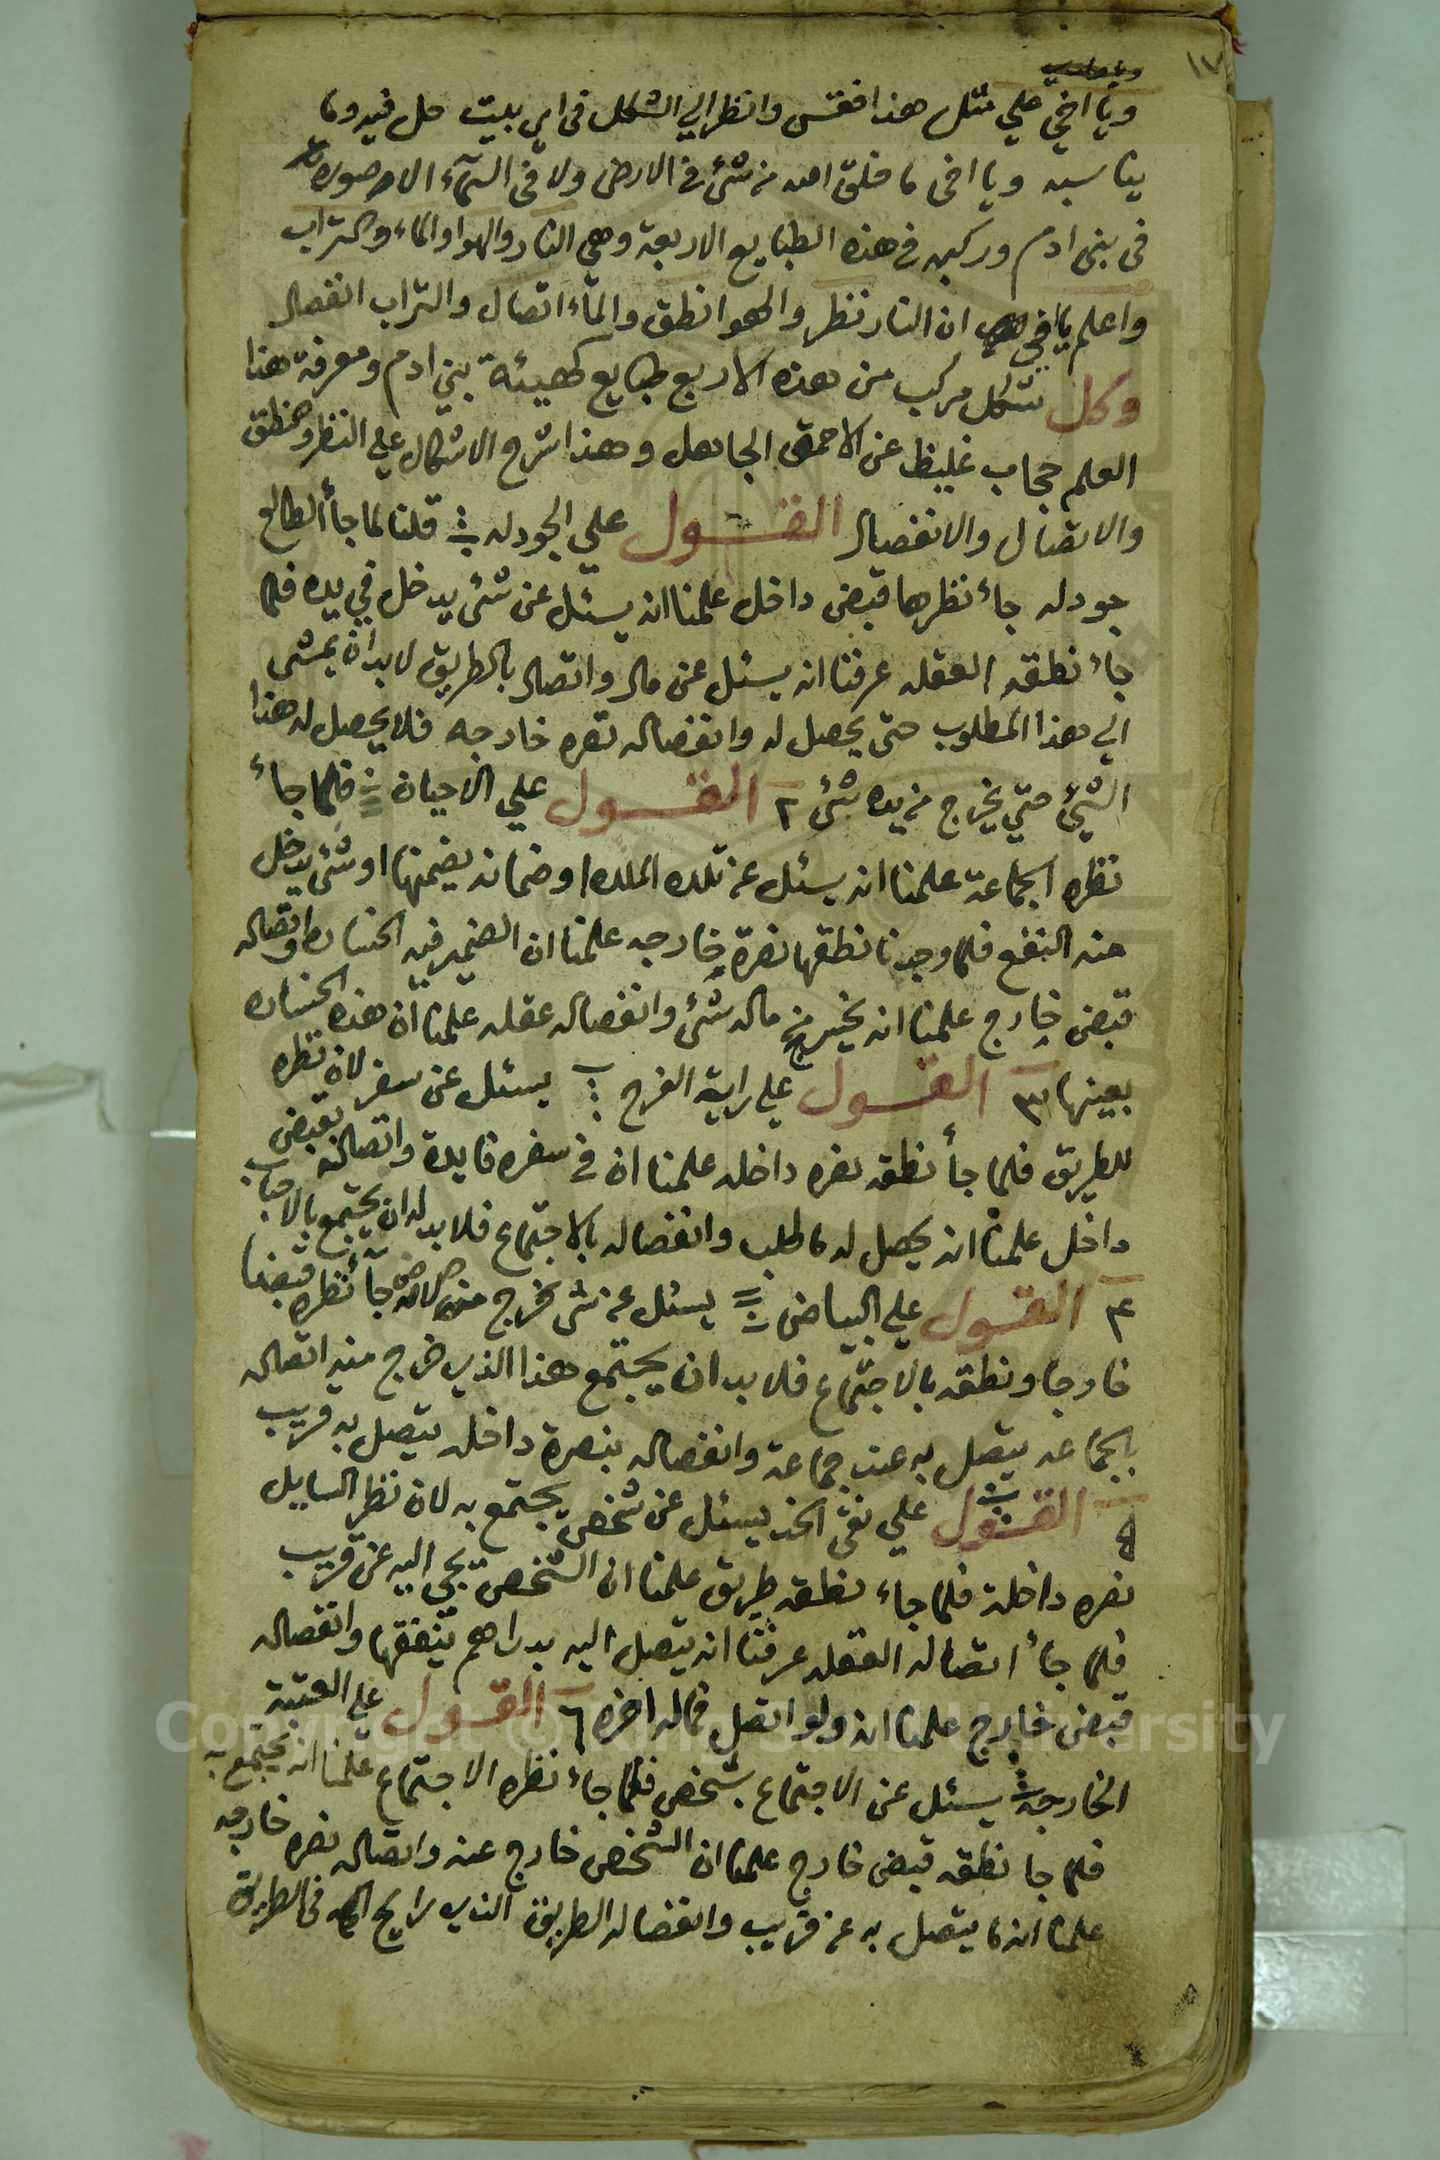 ١٧
ويا اخي علي مثل هذا فقس وانظر الي الشكل في اي بيت حل فيه وما
يناسبه ويا اخي ما خلق الله من شئ في الارض ولا في السماء الا وصوره
في بني ادم وركبه في هذه الطبايع الاربعة وهي النار والهوا والماء والتراب
واعلم يا اخي ان النار نظر والهوا نطق والماء اتصال والتراب انفصال
وكل شكل مركب من هذه الاربع طبايع كهيئة بني ادم ومعرفة هذا
العلم حجاب غليظ عن الاحمق الجاهل وهذا شرح الاشكال علي النظر والنطق
والاتصال والانفصال القول علي الجودله قلنا لما جأ الطالع
جودله جاء نظرها قبض داخل علمنا انه يسئل عن شئ يدخل في يده فلما
جاء نطقه العقله عرفنا انه يسئل عن مال واتصال بالطريق لا بد ان يمشي
الي هذا المطلوب حتي يحصل له وانفصاله نصره خارجه فلا يحصل له هذا
الشئ حتي يخرج من يده شئ ٢ القول علي الاحيان فلما جاء
نظره الجماعة علمنا انه يسئل عن او ضمانه يضمنها او شئ يدخل
منه النفع فلما وجدنا نطقها نصرة خارجه علمنا ان الضمير فيه الخساره واتصاله
قبض خارج علمنا انه يخرج من ماله شئ وانفصاله عقله علمنا ان هذه الخساره
بعينها ٣ القول علي راية الفرح يسئل عن سفر لان نظره
للطريق فلما جأ نطقه نصره داخله علمنا ان في سفره فايدة واتصاله بقبض
داخل علمنا انه يحصل له ما طلب وانفصاله بالاجتماع فلا بد له ان يجتمع بالاحباب
٤ القول علي البياض يسئل عن شئ خرج منه لانه جاء نظره قبضا
خارجا ونطقه بالاجتماع فلا بد ان يجتمع هذا الذي خرج منه اتصاله
بالجماعه يتصل به عند جماعة وانفصاله بنصرة داخله يتصل به قريب
٥ القول علي نقي الخد يسئل عن شخص يجتمع به لان نظر السايل
نصره داخلة فلما جاء نطقه طريق علمنا ان الشخص يجي اليه عن قريب
فلما جأ اتصاله العقله عرفنا انه يتصل اليه بدراهم ينفقها وانفصاله
قبض خارج علمنا انه ولو اتصل فماله اخره ٦ القول علي العتبة
الخارجة يسئل عن الاجتماع بشخص فلما جاء نظره الاجتماع علمنا انه يجتمع به
فلما جا نطقه قبض خارج علمنا ان الشخص خارج عنه واتصاله نصره خارجه
علمنا انه ما يتصل به عن قريب وانفصاله الطريق الذي رايح اليه في الطريق
Copyright © King Saud University